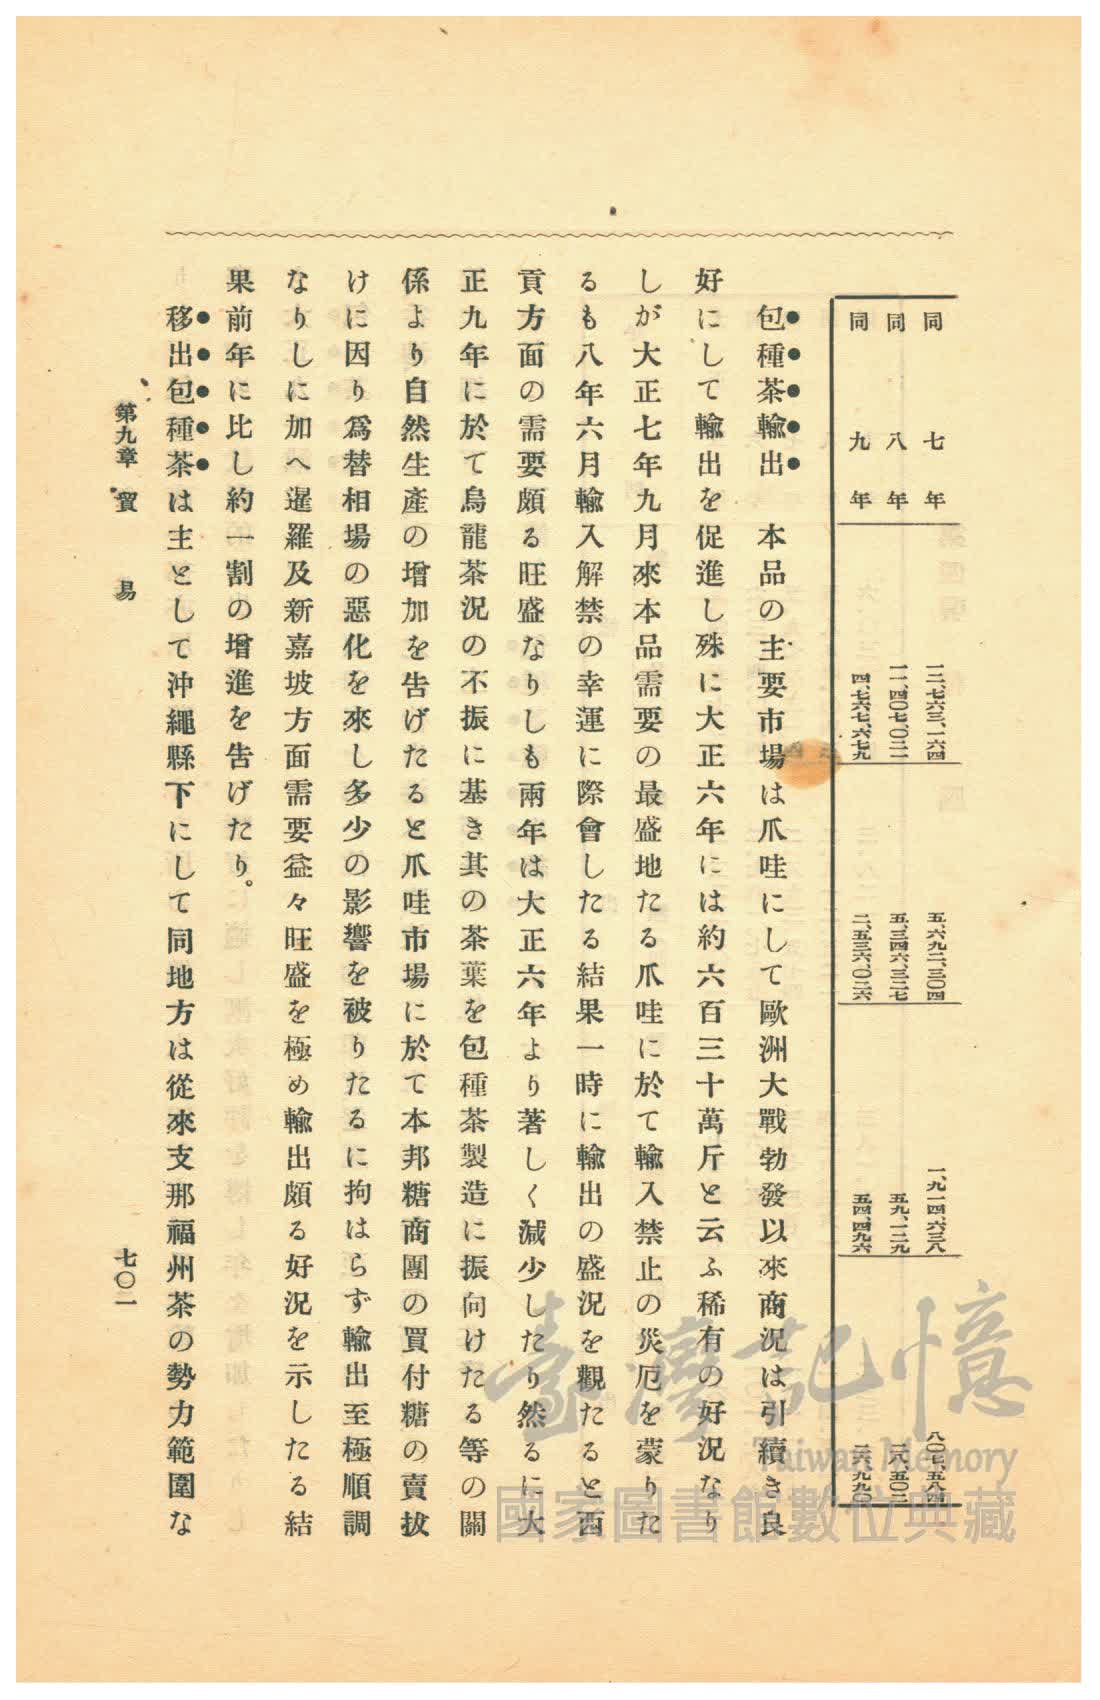 同七年 一二、七六三、一六四 五、六九二、三〇四 一、九一四、六三八 八〇七、五八四
同八年 一一、四〇七、〇二一 五、三四六、三二七 五九、一二九
同九年 四、七六七、六七九 二、五三六、〇二六 五四、四九六 二六、九九〇
包種茶輸出 本品の主要市場は爪哇にして歐洲大戰勃發以來商況は引續き良
好にして輸出を促進し殊に大正六年には約六百三十萬斤と云ふ稀有の好況なり
しが大正七年九月來本品需要の最盛地たる爪哇に於て輸入禁止の災厄を蒙りた
るも八年六月輸入解禁の幸運に際會したる結果一時に輸出の盛況を觀たると西
貢方面の需要頗る旺盛なりしも兩年は大正六年より著しく減少したり然るに大
正九年に於て烏龍茶況の不振に基き其の茶葉を包種茶製造に振向けたる等の關
係より自然生產の增加を吿げたると爪哇市場に於て本邦糖商團の買付糖の賣拔
けに因り爲替相場の惡化を來し多少の影響を被りたるに拘はらず輸出至極順調
なりしに加へ暹羅及新嘉坡方面需要益々旺盛を極め輸出頗る好況を示したる結
果前年に比し約一割の增進を吿げたり。
移出包種茶は主として沖繩縣下にして同地方は從來支那福州茶の勢力範圍な
第九章 貿易 七〇一
臺灣記憶
Taiwan Memory
國家圖書館數位典藏